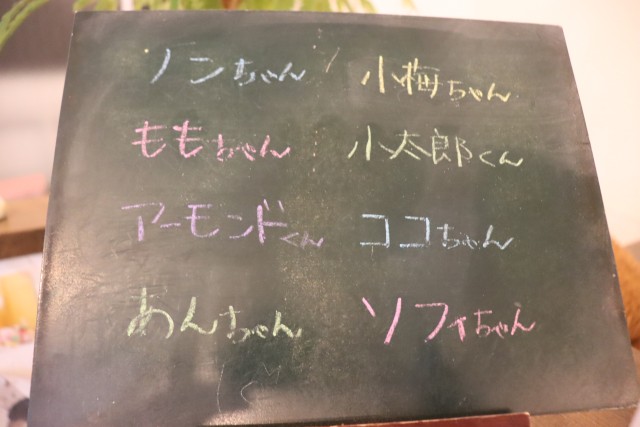 ノンちゃん 小梅ちゃん
ももちゃん 小太郎くん
アーモンドくん ココちゃん
あんちゃん ソフィちゃん